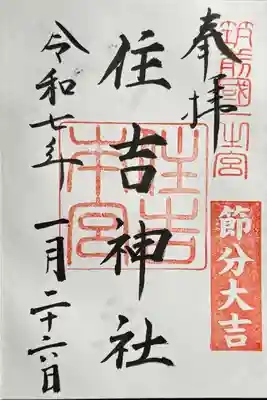 奉拝
筑前國一之宮
節分大吉
住吉神社
住吉本宮
令和七年 一月二十六日